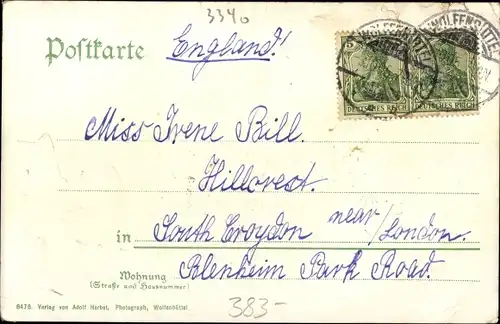 3340
Postkarte
England!
WOLFENBÜTTEL
5 5
DEUTSCHES REICH DEUTSCHES REICH
Miss Irene Bill.
Hillcrest.
in South Croydon near/London.
Wohnung
(Straße und Hausnummer)
Blenheim Park Road.
8478. Verlag von Adolf Herbst, Photograph, Wolfenbüttel
383-